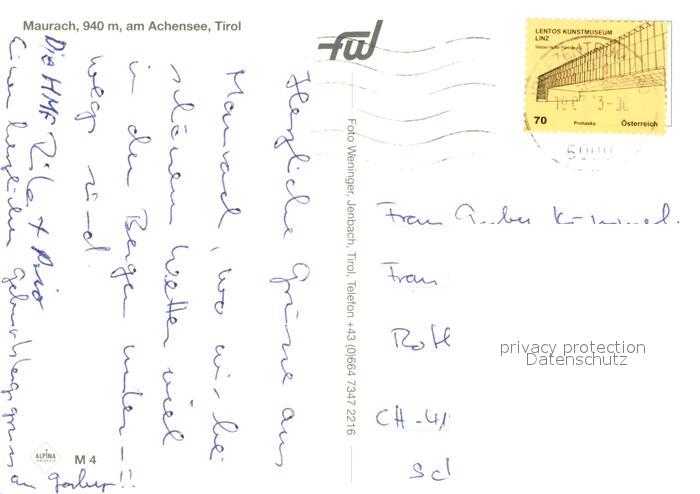 Maurach, 940 m, am Achensee, Tirol
Herzliche Grüsse aus
Maurach, wo wir bei
schönem Wetter viel
in den Bergen
wegs sind.
Die
einen herzlichen Geburtstagsgruss
an
ALPINA
M 4
fw
Foto Weninger, Jenbach, Tirol, Telefon +43 (0)664 7347 2216
LENTOS KUNSTMUSEUM
LINZ
70
Prohaska
Österreich
Frau
Frau
Roth
CH-41
Sc
privacy protection
Datenschutz